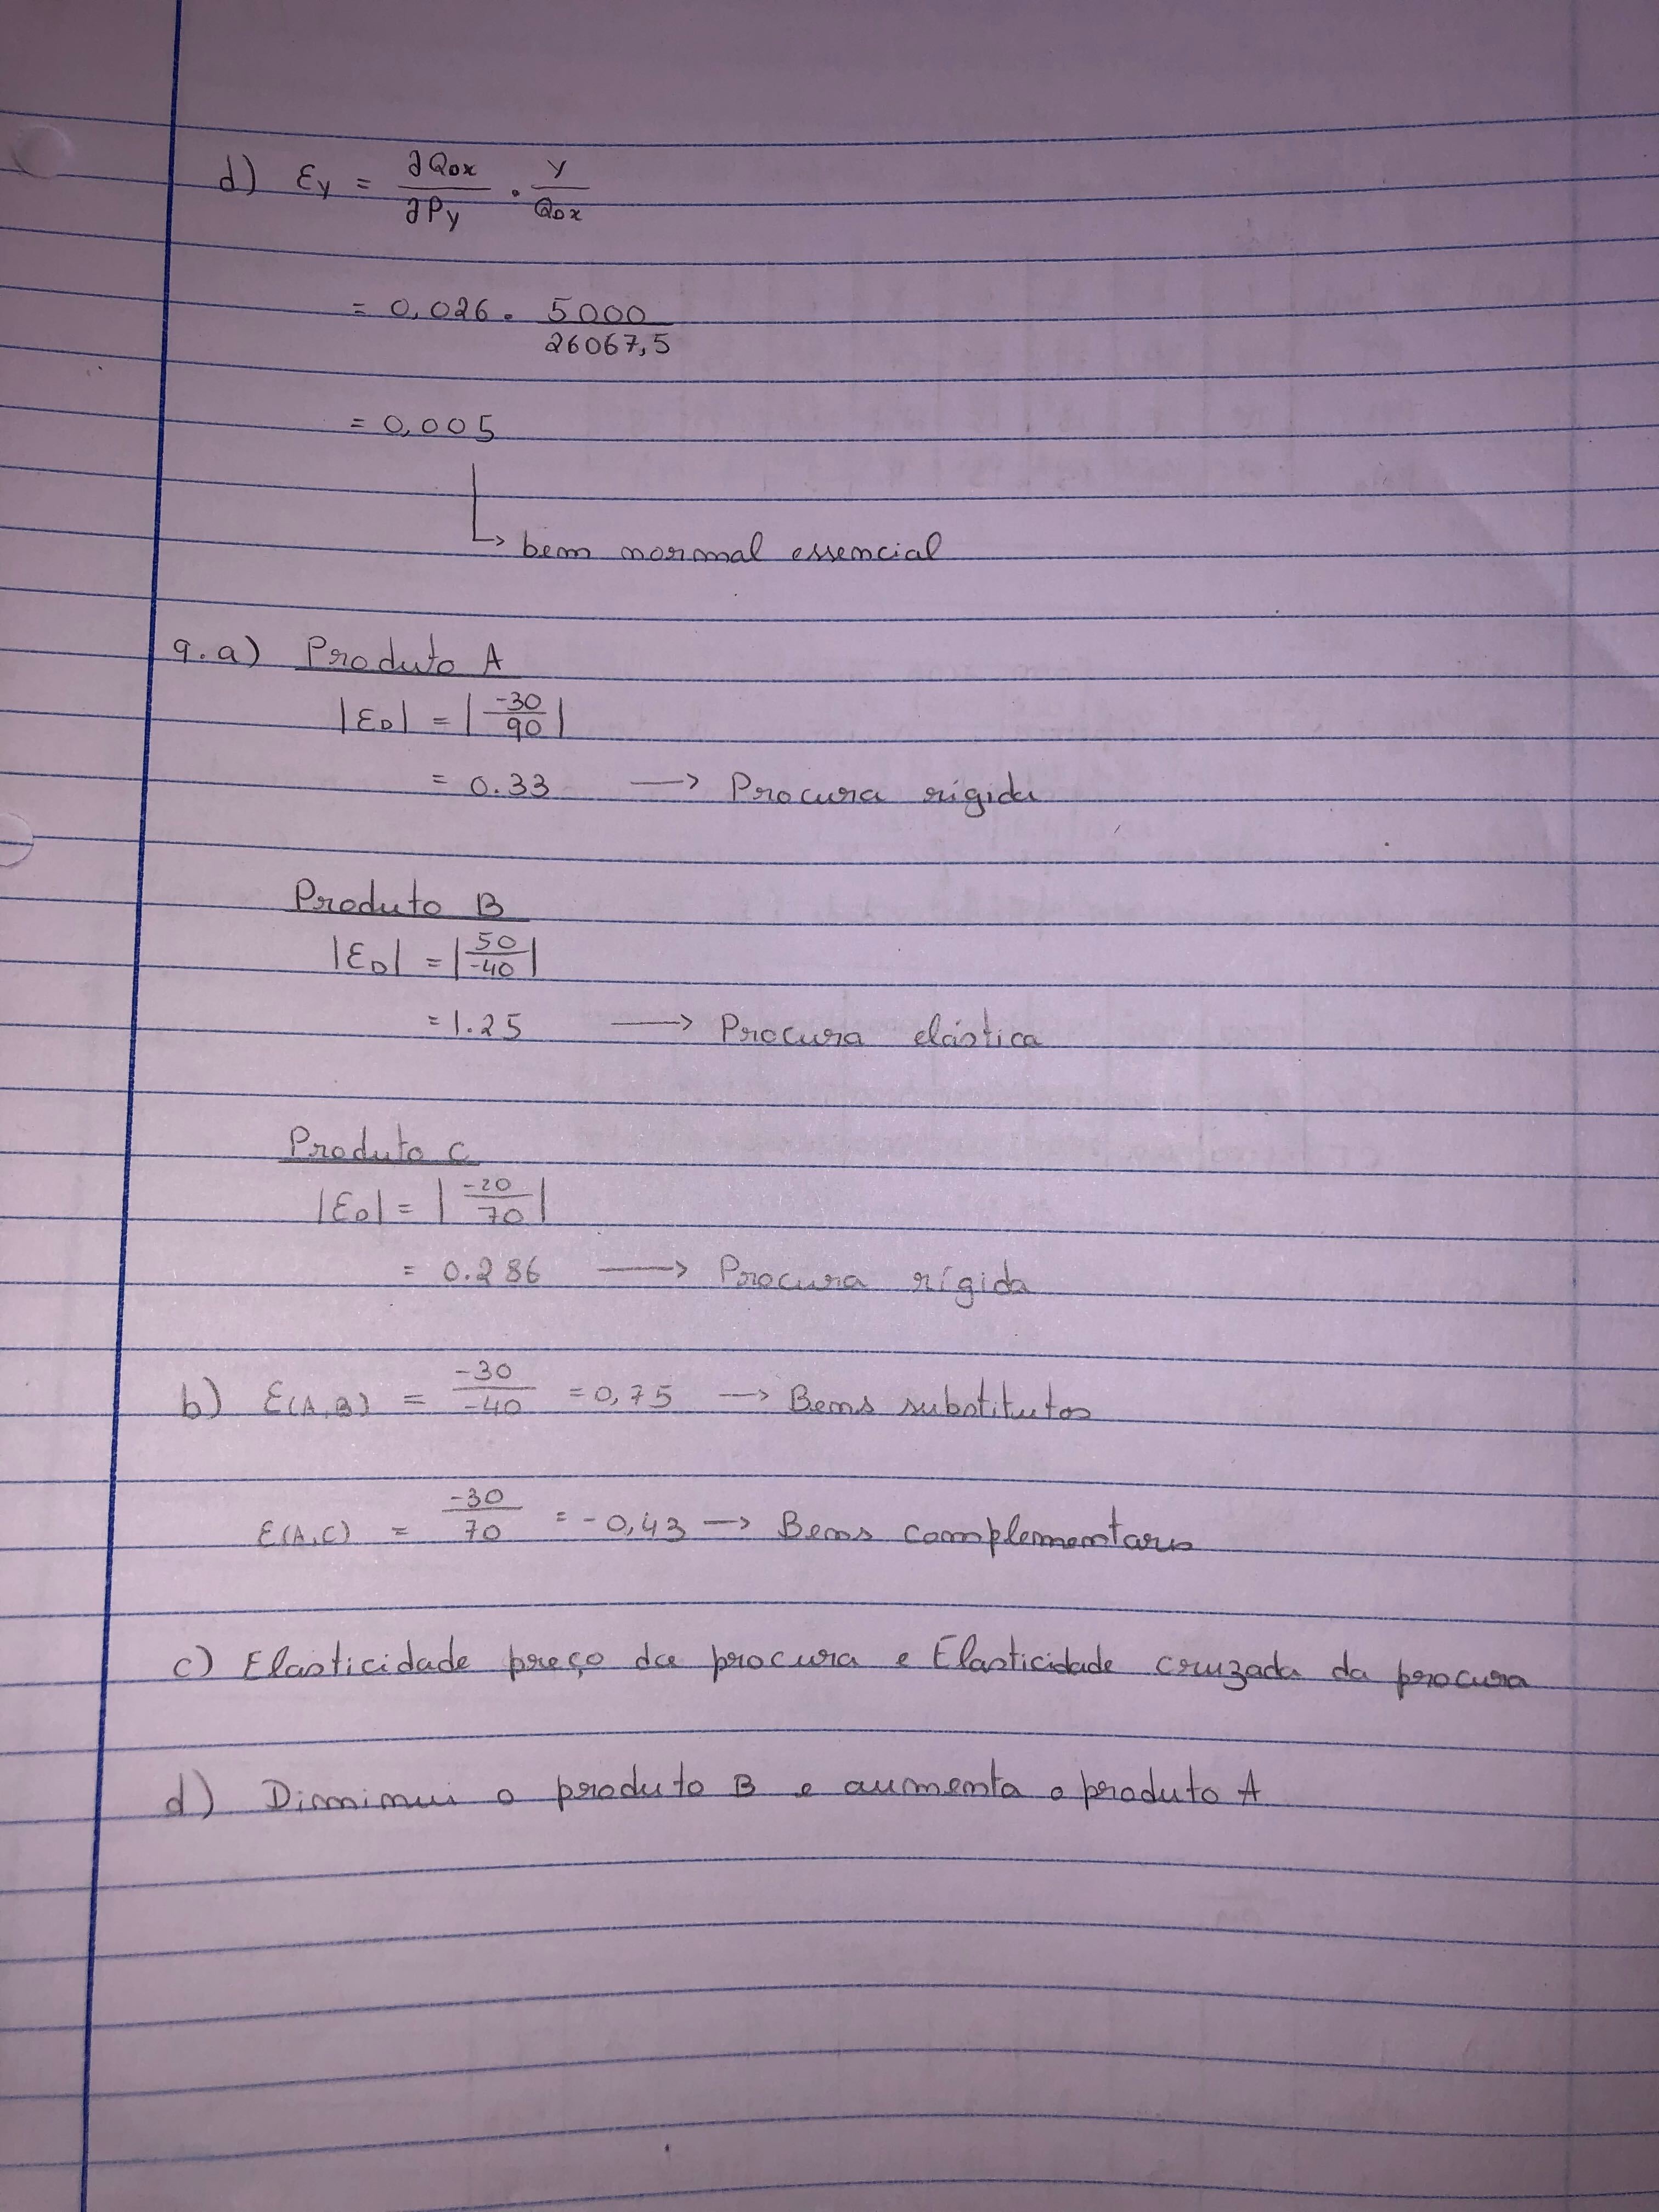 d) εy = ∂QDx / ∂Py · Y / QDx
= 0,026 · 5000 / 26067,5
= 0,005
↳ bem normal essencial
9.a) Produto A
|εD| = |-30 / 90|
= 0.33 → Procura rígida
Produto B
|εD| = |50 / -40|
= 1.25 → Procura elástica
Produto C
|εD| = |-20 / 70|
= 0.286 → Procura rígida
b) ε(A,B) = -30 / -40 = 0,75 → Bens substitutos
ε(A,C) = -30 / 70 = -0,43 → Bens complementares
c) Elasticidade preço da procura e Elasticidade cruzada da procura
d) Diminui o produto B e aumenta o produto A